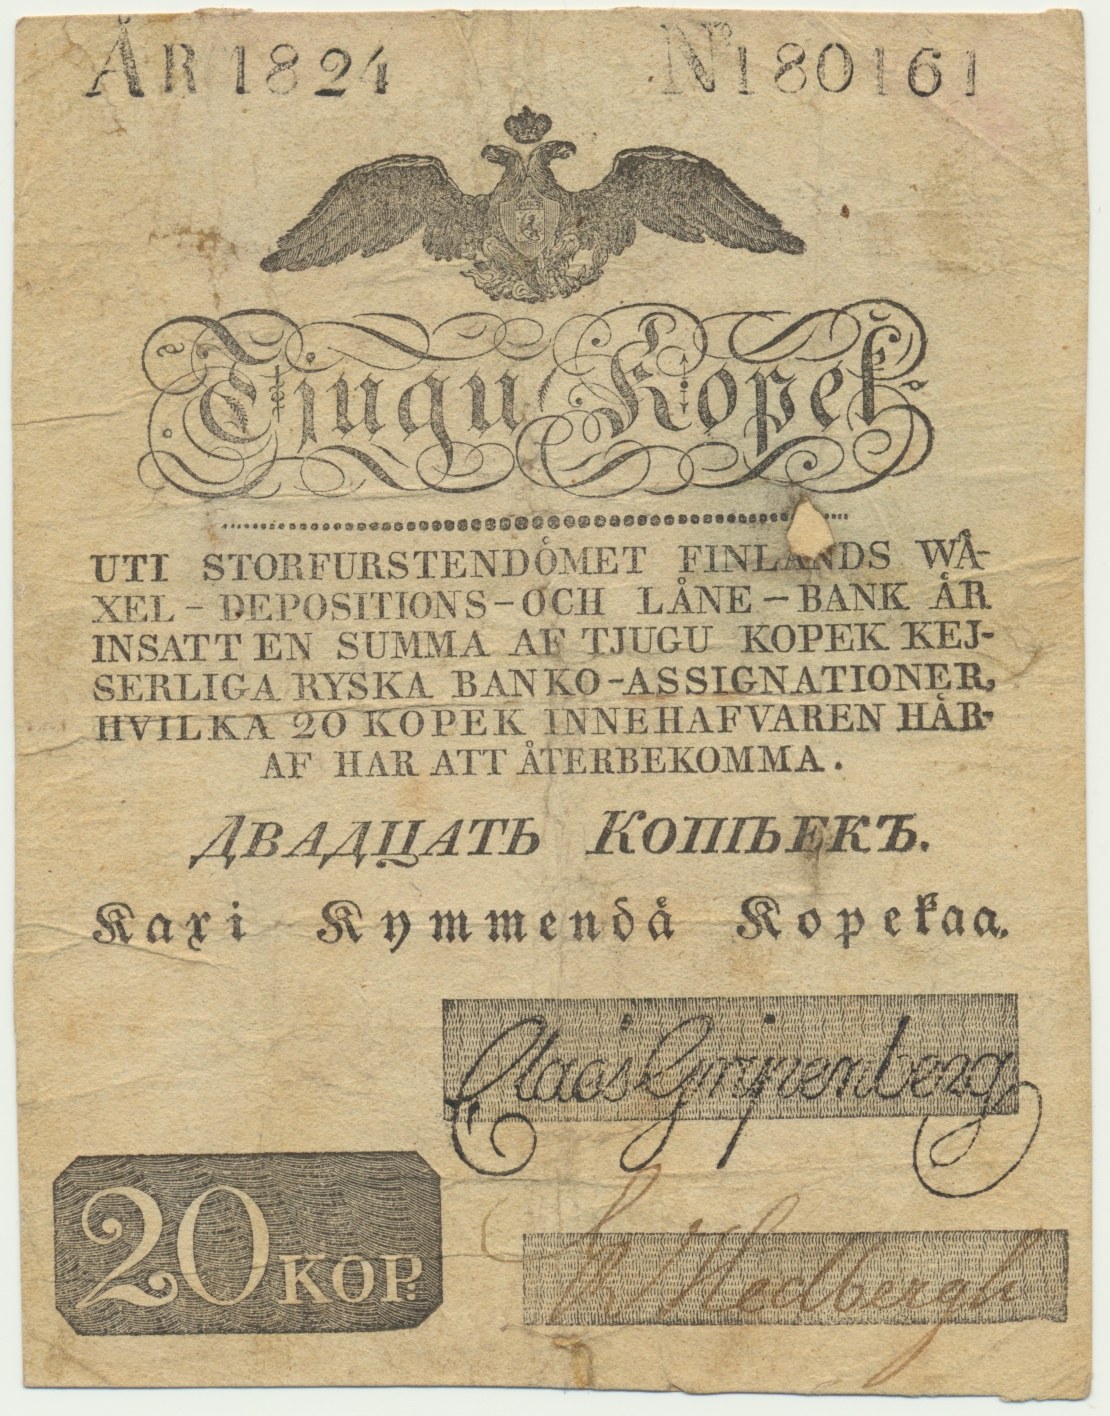 ÅR 1824 No 180161
Tjugu Kopek.
UTI STORFURSTENDÖMET FINLANDS WÄ-
XEL-DEPOSITIONS-OCH LÅNE-BANK ÄR
INSATT EN SUMMA AF TJUGU KOPEK KEJ-
SERLIGA RYSKA BANKO-ASSIGNATIONER,
HVILKA 20 KOPEK INNEHAFVAREN HÄR-
AF HAR ATT ÅTERBEKOMMA.
ДВАДЦАТЬ КОПѢЕКЪ.
Kaxi Kymmendå Kopekaa.
Claes Gripenberg
20 KOP.
Hedbergh